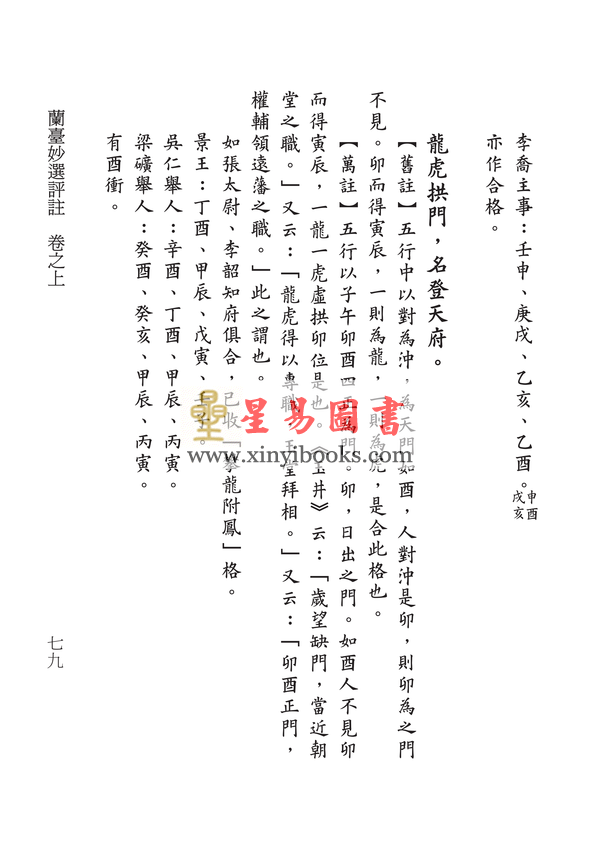 李喬主事：壬申、庚戌、乙亥、乙酉。申酉戌亥
亦作合格。
龍虎拱門，名登天府。
【舊註】五行中以對為沖，為天門如酉，人對沖是卯，則卯為之門
不見。卯而得寅辰，一則為龍，一則為虎，是合此格也。
【萬註】五行以子午卯酉四正為門。卯，日出之門。如酉人不見卯
而得寅辰，一龍一虎虛拱卯位是也。《玉井》云：「歲望缺門，當近朝
堂之職。」又云：「龍虎得以專職，玉堂拜相。」又云：「卯酉正門，
權輔領遠藩之職。」此之謂也。
如張太尉、李韶知府俱合，已收「攀龍附鳳」格。
景王：丁酉、甲辰、戊寅、壬子。
吳仁舉人：辛酉、丁酉、甲辰、丙寅。
梁礦舉人：癸酉、癸亥、甲辰、丙寅。
有酉衝。
蘭臺妙選評註　卷之上
七九
星易圖書
www.xinyibooks.com